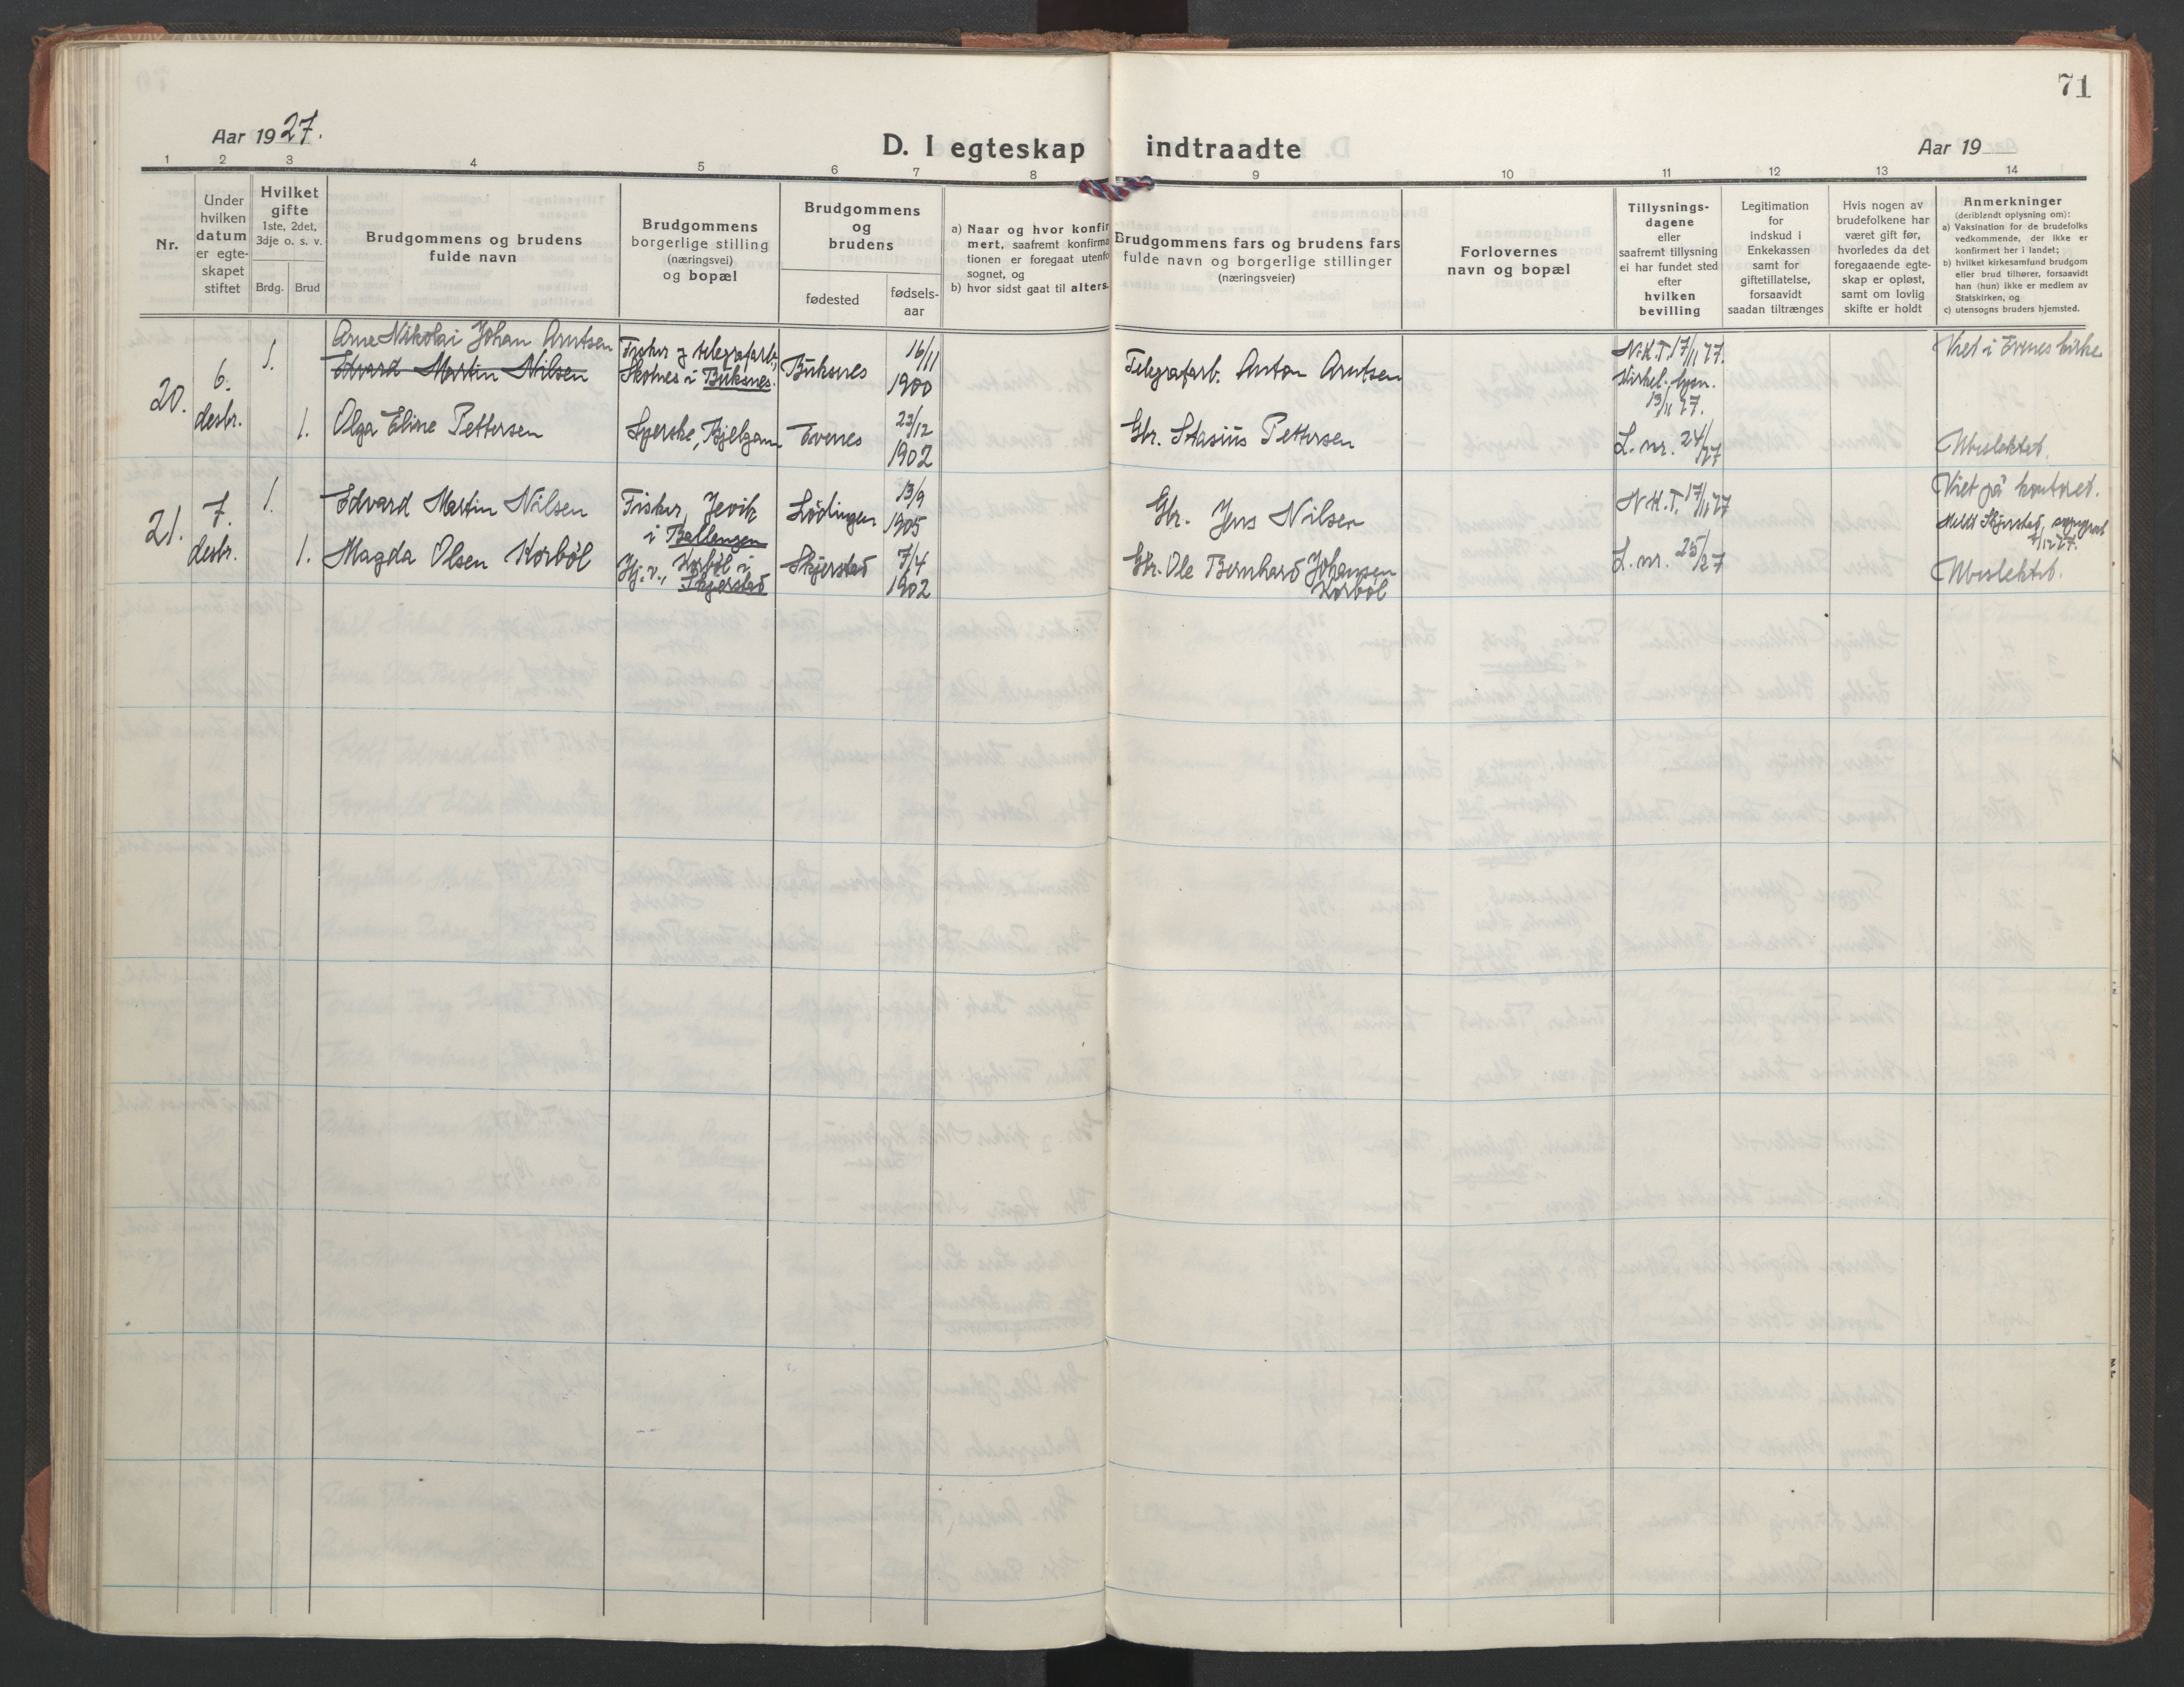 71
Aar 1927.
D. I egteskap indtraadte
Aar 19
1 2 3 4 5 6 7 8 9 10 11 12 13 14
Nr.
Under
hvilken
datum
er egte-
skapet
stiftet
Hvilket
gifte
1ste, 2det,
3dje o. s. v.
Brdg. Brud
Brudgommens og brudens
fulde navn
Brudgommens
borgerlige stilling
(næringsvei)
og bopæl
Brudgommens
og
brudens
fødested
fødsels-
aar
a) Naar og hvor konfir
mert, saafremt konfirma
tionen er foregaat utenfo
sognet, og
b) hvor sidst gaat til alters.
Brudgommens fars og brudens fars
fulde navn og borgerlige stillinger
(næringsveier)
Forlovernes
navn og bopæl
Tillysnings-
dagene
eller
saafremt tillysning
ei har fundet sted
efter
hvilken
bevilling
Legitimation
for
indskud i
Enkekassen
samt for
giftetillatelse,
forsaavidt
saadan tiltrænges
Hvis nogen av
brudefolkene har
været gift før,
hvorledes da det
foregaaende egte-
skap er opløst,
samt om lovlig
skifte er holdt
Anmerkninger
(deriblandt oplysning om):
a) Vaksination for de brudefolks
vedkommende, der ikke er
konfirmert her i landet;
b) hvilket kirkesamfund brudgom
eller brud tilhører, forsaavidt
han (hun) ikke er medlem av
Statskirken, og
c) utensogns bruders hjemsted.
20.
6.
desbr.
1.
Arne Nikolai Johan Arntsen
Edvard Martin Nilsen
Fisker g telegrafarb.,
Skotnes i Buksnes.
Buksnes
16/11
1900
Telegrafarb. Anton Arntsen
N.K.T. 17/11 27.
13/11 27.
Viet i Evenes kirke
1.
Olga Eline Pettersen
Syerske,
Evenes
23/12
1902
Gbr. Stasius Pettersen
L. nr. 24/27
Ubeslektet.
21.
7.
desbr.
1.
Edvard Martin Nilsen
Fisker, Jevik
i Ballangen
Lødingen
13/9
1905
Gbr. Jens Nilsen
N.K.T. 17/11 27
Viet på kontoret.
Meldt Skjerstad, sogneprest
7/12 27.
1.
Magda Olsen Korbøl
Hj. v., Korbøl i
Skjerstad
Skjerstad
7/4
1902
Gbr. Ole Bernhard Johansen
Korbøl
L. nr. 25/27
Ubeslektet.